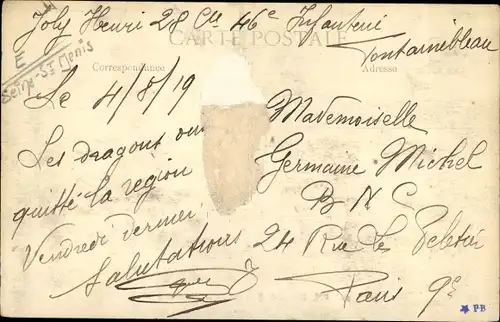 Joly Henri 28 Cie 46e Infanterie
Fontainebleau
CARTE POSTALE
Correspondance
Adresse
Seine-St Denis
Le 4/8/19
Mademoiselle
Les dragons ont
Germaine Michel
quitté la region
B N C
Vendredi dernier
24 Rue Le Peletier
Salutations
Paris 9e
PB